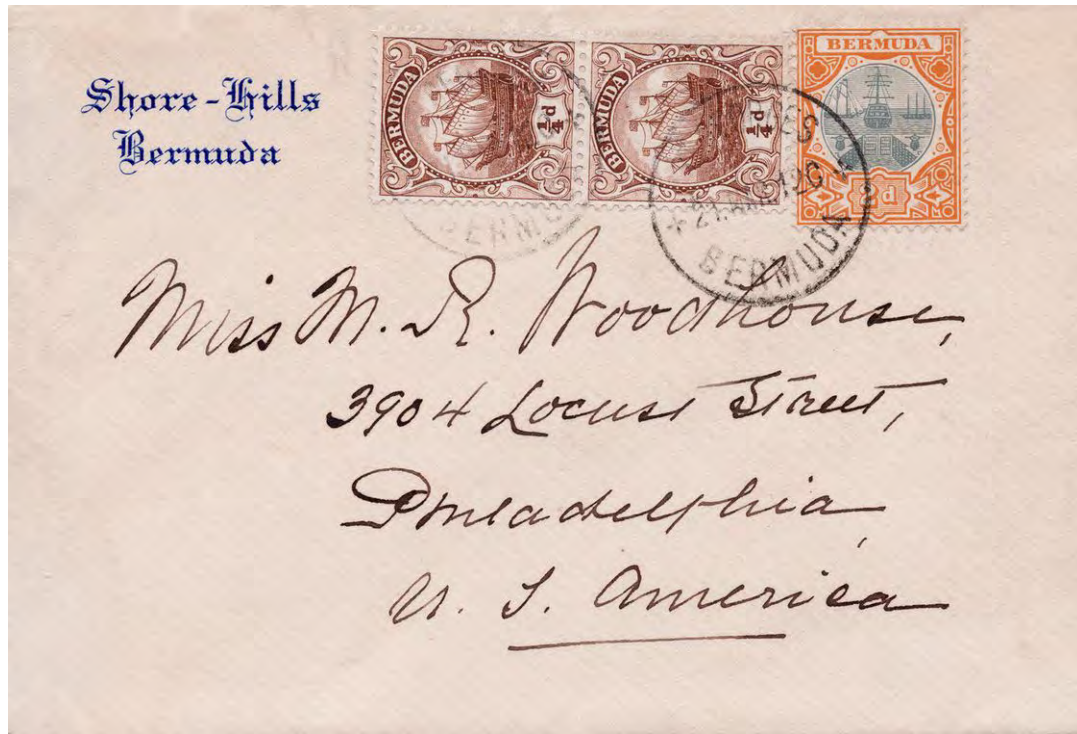 Shore-Hills
Bermuda
BERMUDA
¼d
BERMUDA
¼d
BERMUDA
d
BERMU
BERMUDA
Miss M. R. Woodhouse,
3904 Locust Street,
Philadelphia,
U. S. America